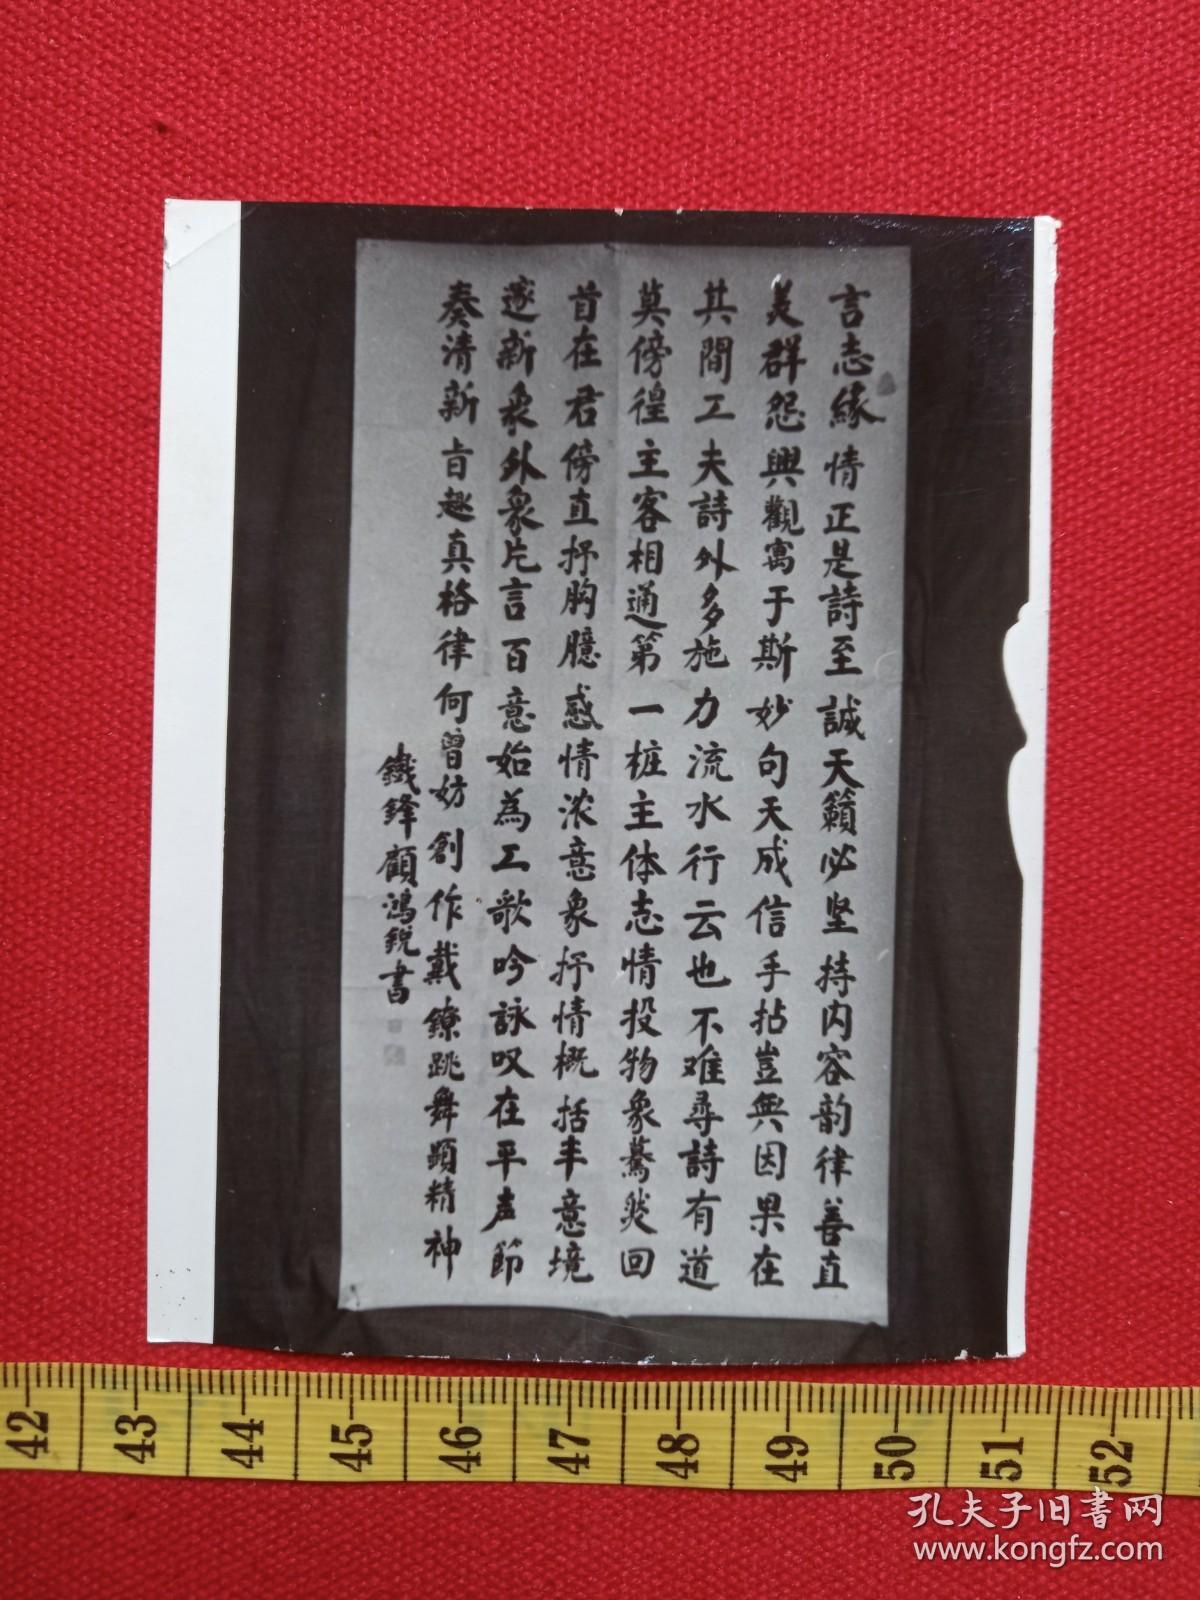 言志緣情正是詩至誠天籟必坚持内容韵律善真
美群怨興觀寓于斯妙句天成信手拈豈無因果在
其間工夫詩外多施力流水行云也不难尋詩有道
莫傍徨主客相通第一桩主体志情投物象驀然回
首在君傍直抒胸臆感情浓意象抒情概括丰意境
邃新象外象片言百意始為工歌吟詠叹在平声節
奏清新旨趣真格律何曾妨創作戴鐐跳舞顯精神
鐵鋒顧鴻銳書
42 43 44 45 46 47 48 49 50 51 52
孔夫子旧书网
www.kongfz.com